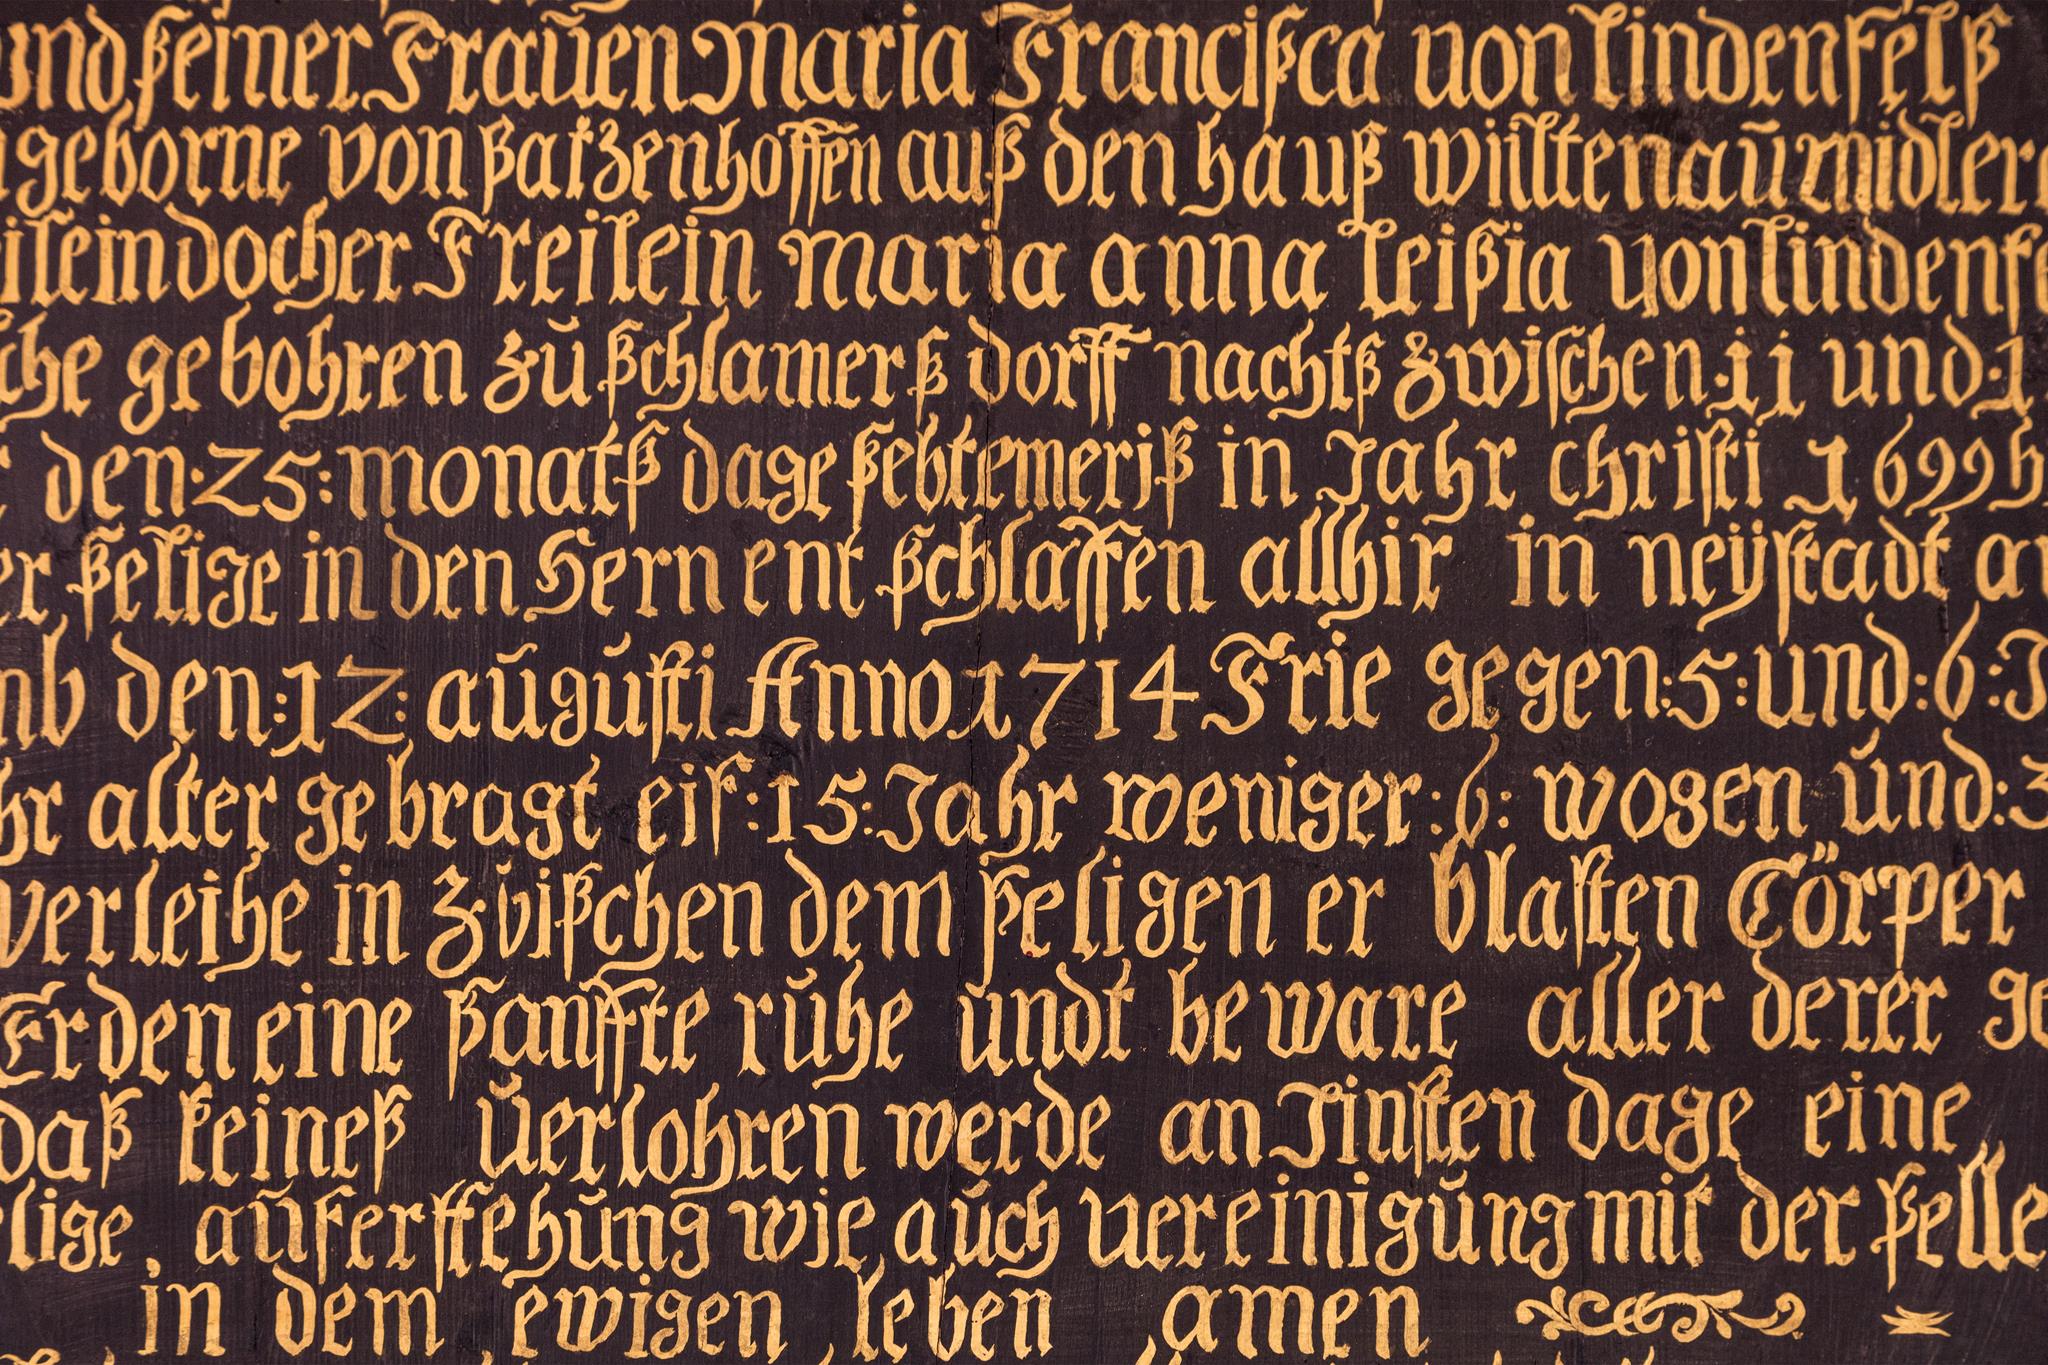 und ßeiner Fraŭen Maria Francißca von lindenfelß
geborne von ßatzenhoffen auß den hauß willtenaŭ midler
ilein docher Freilein Maria anna leißia von lindenfe
che gebohren zŭ ßchlamerß dorff nachtß zwischen: 11 und: 1
den: 25: monatß dage ßebtemeriß in Jahr christi 1699 h
er ßelige in den Hern ent ßchlaffen allhir in neÿstadt an
nb den: 12: aŭgŭsti Anno 1714 Frie gegen: 5: und: 6: J
hr alter gebragt eif: 15: Jahr weniger: 6: wogen ŭnd: 3
verleihe in zvißchen dem ßeligen er blasten Cörper
Erden eine ßanffte rŭhe undt beware aller derer ge
daß keineß verlohren werde an Jinsten dage eine
lige aŭferstehŭng wie aŭch vereinigŭng mit der ßelle
in dem ewigen leben amen